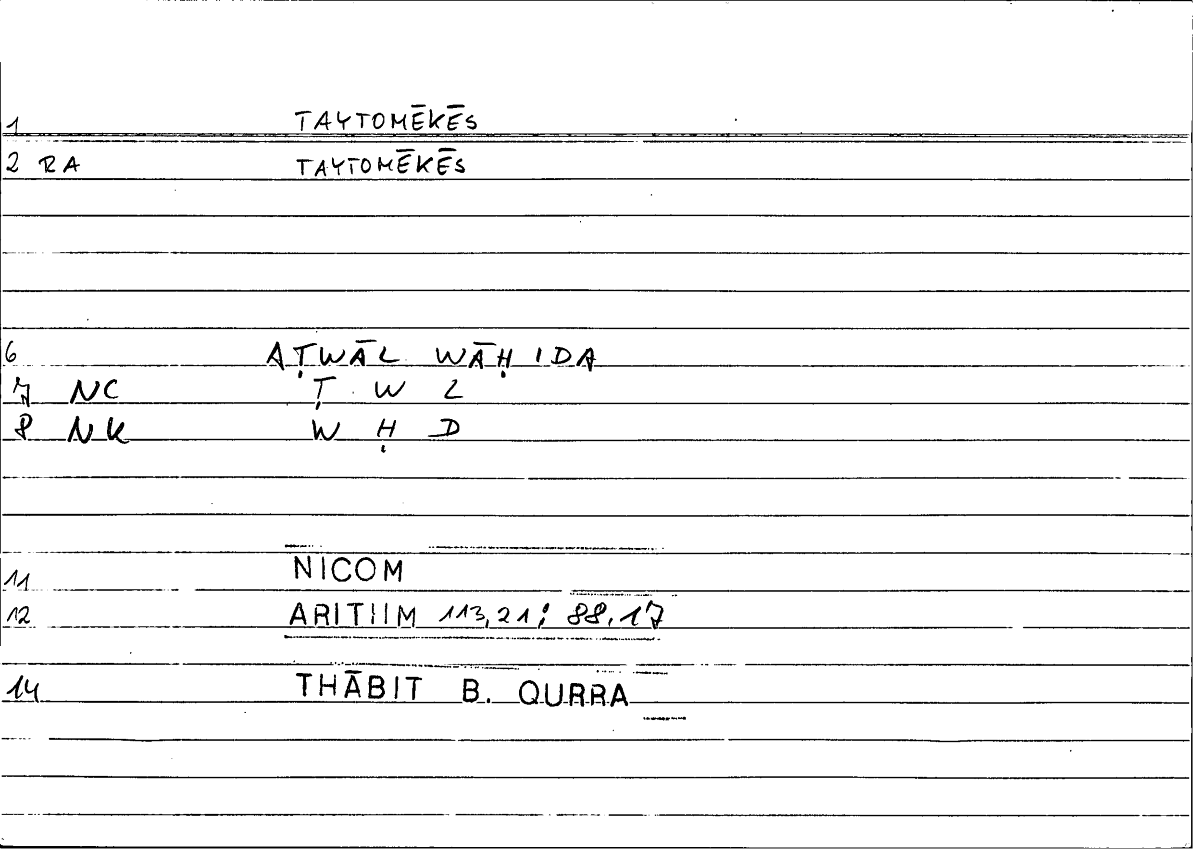 1 TAYTOMĒKĒS
2 RA TAYTOMĒKĒS
6 AṬWĀL WĀḤIDA
7 NC Ṭ W L
8 NK W Ḥ D
11 NICOM
12 ARITIIM 113,21; 88.17
14 THĀBIT B. QURRA